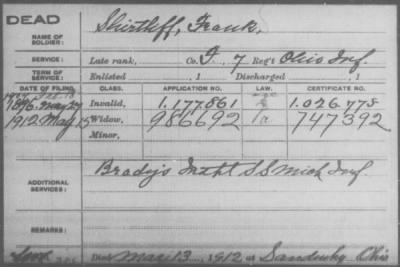 DEAD
NAME OF SOLDIER: Shirtliff, Frank,
SERVICE: Late rank, Co. F, 7 Reg't Ohio Inf.
TERM OF SERVICE: Enlisted , 1 Discharged , 1
DATE OF FILING. CLASS. APPLICATION NO. LAW. CERTIFICATE NO.
1896 May 27 Invalid, 1.177.861 1.026.778
1912 May 15 Widow, 986692 1a 747392
Minor,
ADDITIONAL SERVICES: Bradys Indpt S S Mich Inf.
REMARKS:
Died Mar 13, 1912 at Sandusky Ohio